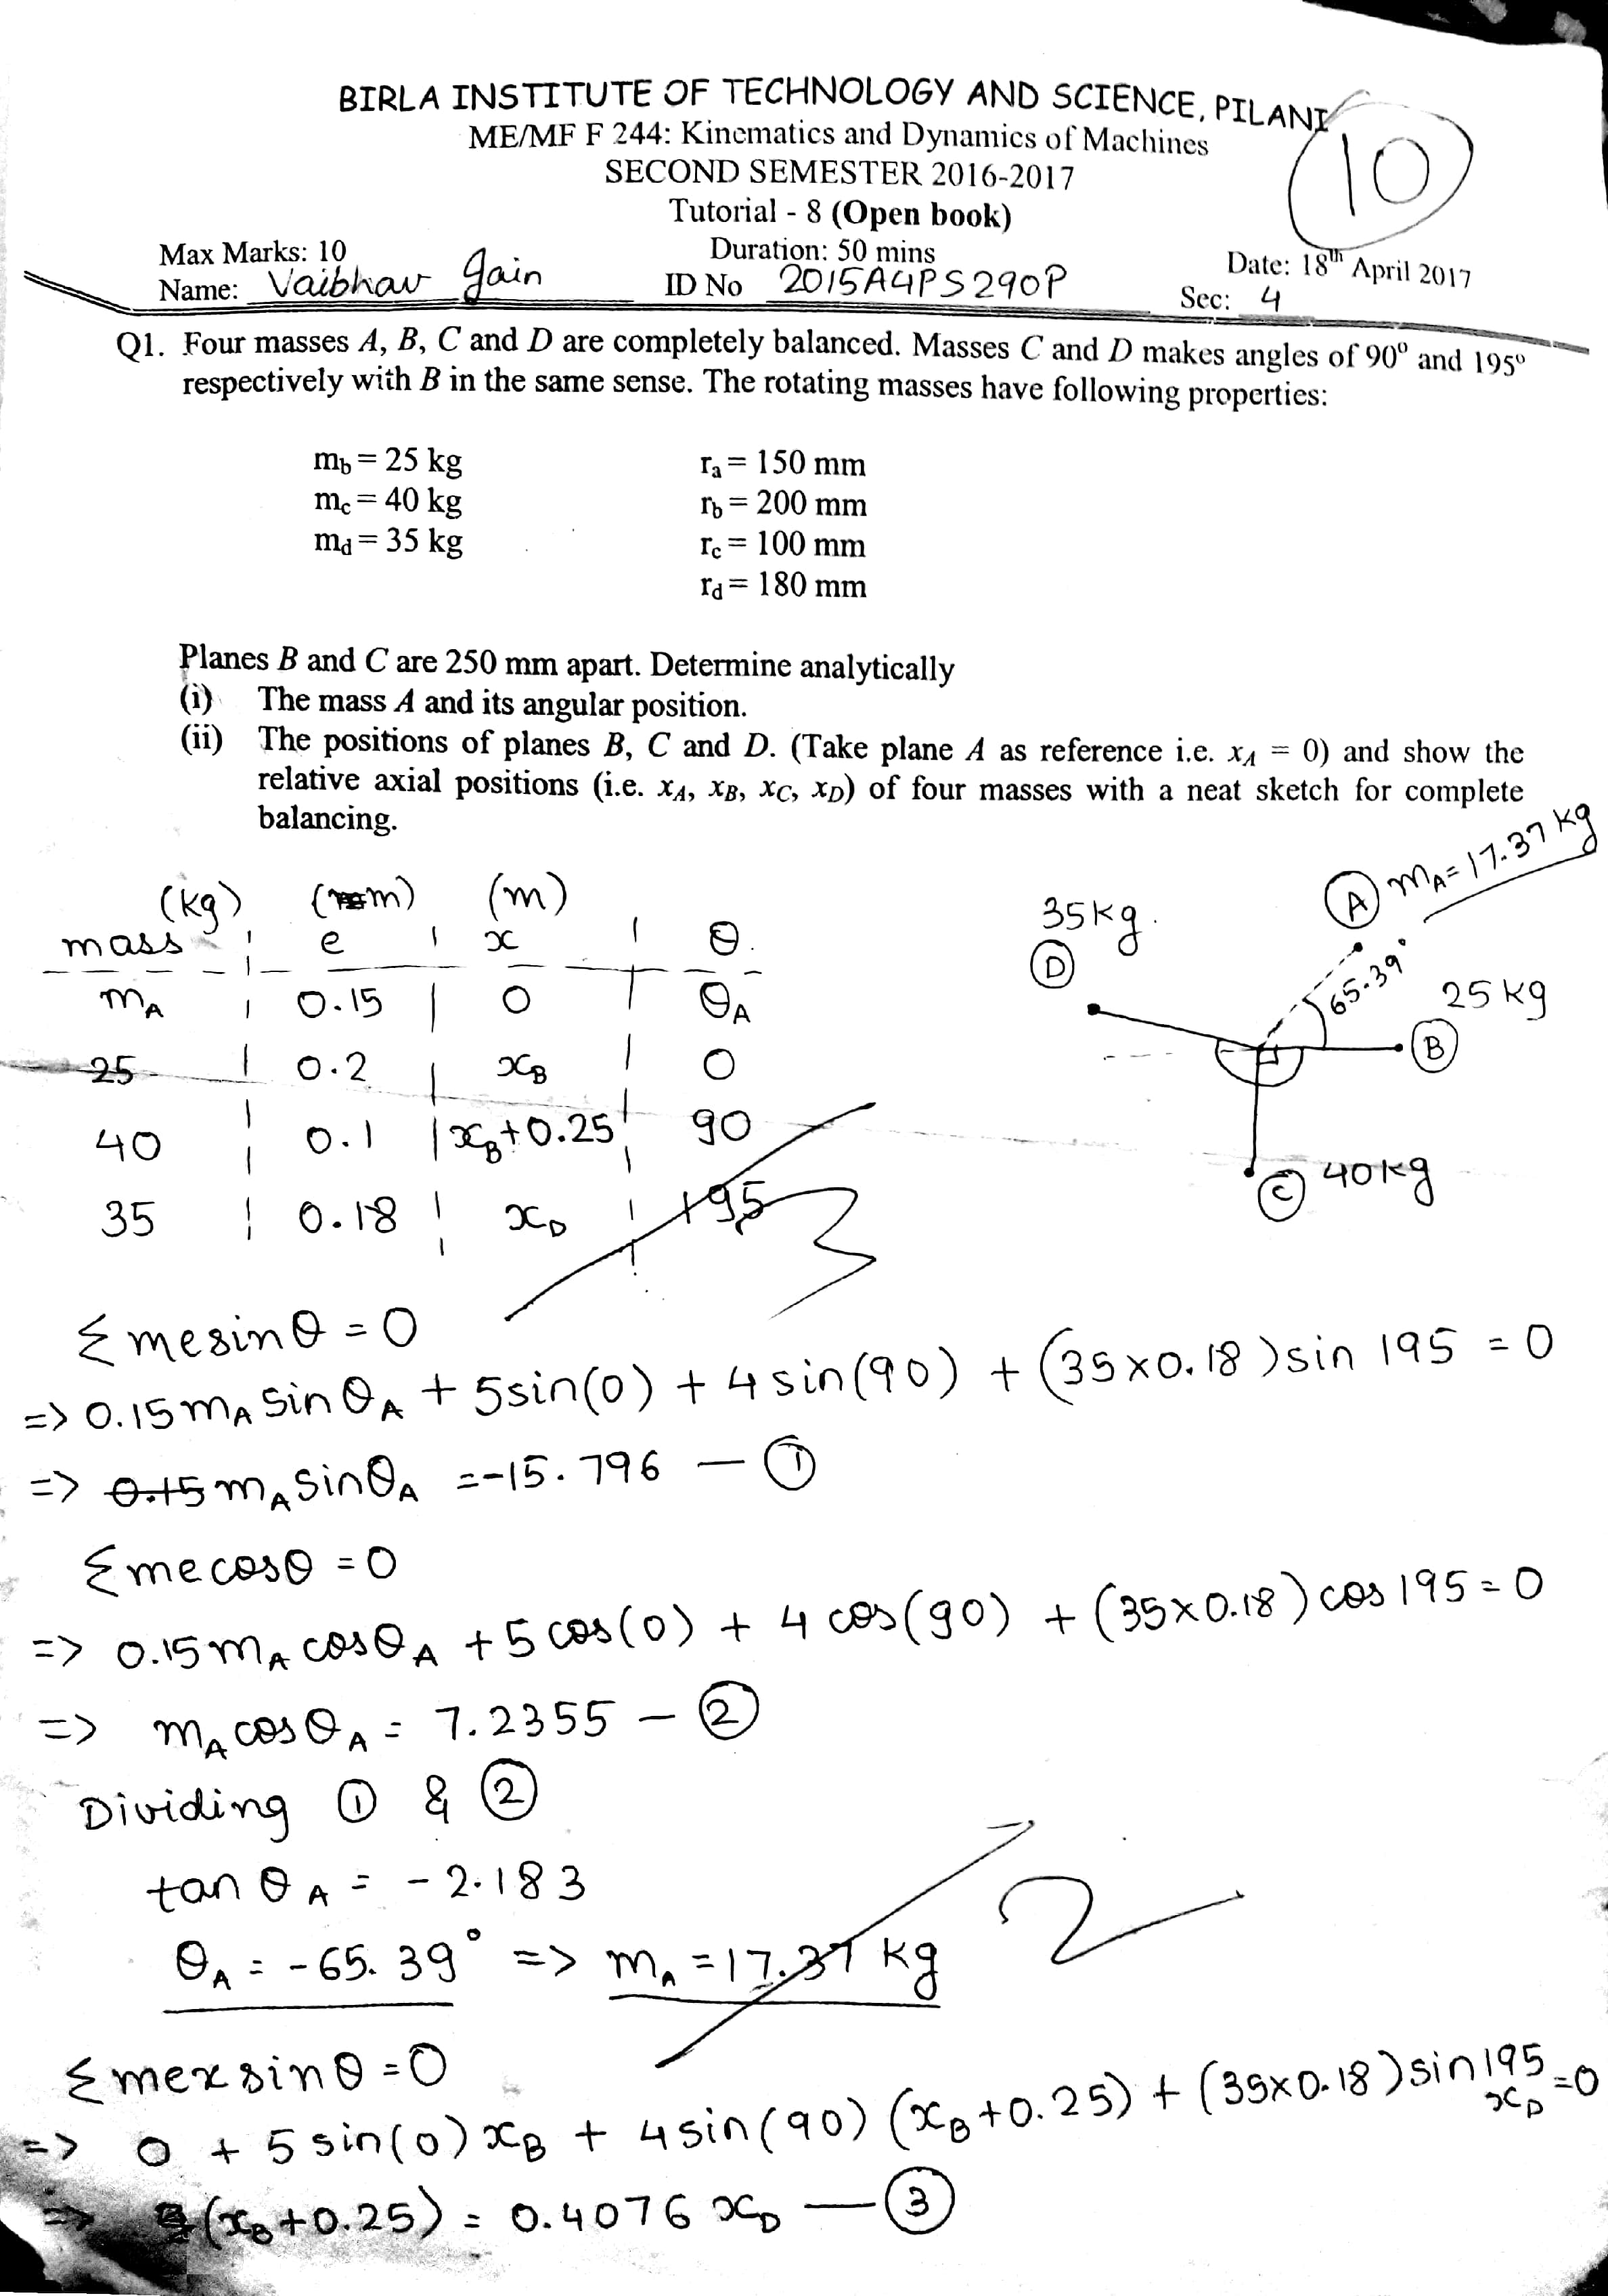 BIRLA INSTITUTE OF TECHNOLOGY AND SCIENCE, PILANI
ME/MF F 244: Kinematics and Dynamics of Machines
10
SECOND SEMESTER 2016-2017
Tutorial - 8 (Open book)
Max Marks: 10 Duration: 50 mins Date: 18th April 2017
Name: Vaibhav Jain ID No 2015A4PS290P Sec: 4
Q1. Four masses A, B, C and D are completely balanced. Masses C and D makes angles of 90⁰ and 195⁰
respectively with B in the same sense. The rotating masses have following properties:
m_b = 25 kg r_a = 150 mm
m_c = 40 kg r_b = 200 mm
m_d = 35 kg r_c = 100 mm
r_d = 180 mm
Planes B and C are 250 mm apart. Determine analytically
(i) The mass A and its angular position.
(ii) The positions of planes B, C and D. (Take plane A as reference i.e. x_A = 0) and show the
relative axial positions (i.e. x_A, x_B, x_C, x_D) of four masses with a neat sketch for complete
balancing.
(kg) (m) (m)
mass e x θ.
m_A 0.15 0 θ_A
25 0.2 x_B 0
40 0.1 x_B+0.25 90
35 0.18 x_D 195
3
A m_A = 17.37 kg
35kg.
D
65.39°
25 kg
B
C 40kg
Σ me sinθ = 0
=> 0.15 m_A sin θ_A + 5sin(0) + 4 sin(90) + (35×0.18) sin 195 = 0
=> 0.15 m_A sinθ_A = -15.796 — ①
Σ me cosθ = 0
=> 0.15 m_A cosθ_A + 5 cos(0) + 4 cos(90) + (35×0.18) cos 195 = 0
=> m_A cosθ_A = 7.2355 — ②
Dividing ① & ②
tan θ_A = - 2.183
θ_A = - 65.39° => m_A = 17.37 kg
2
Σ mex sinθ = 0
=> 0 + 5 sin(0) x_B + 4 sin(90) (x_B+0.25) + (35×0.18) sin 195 x_D = 0
=> (x_B+0.25) = 0.4076 x_D — ③